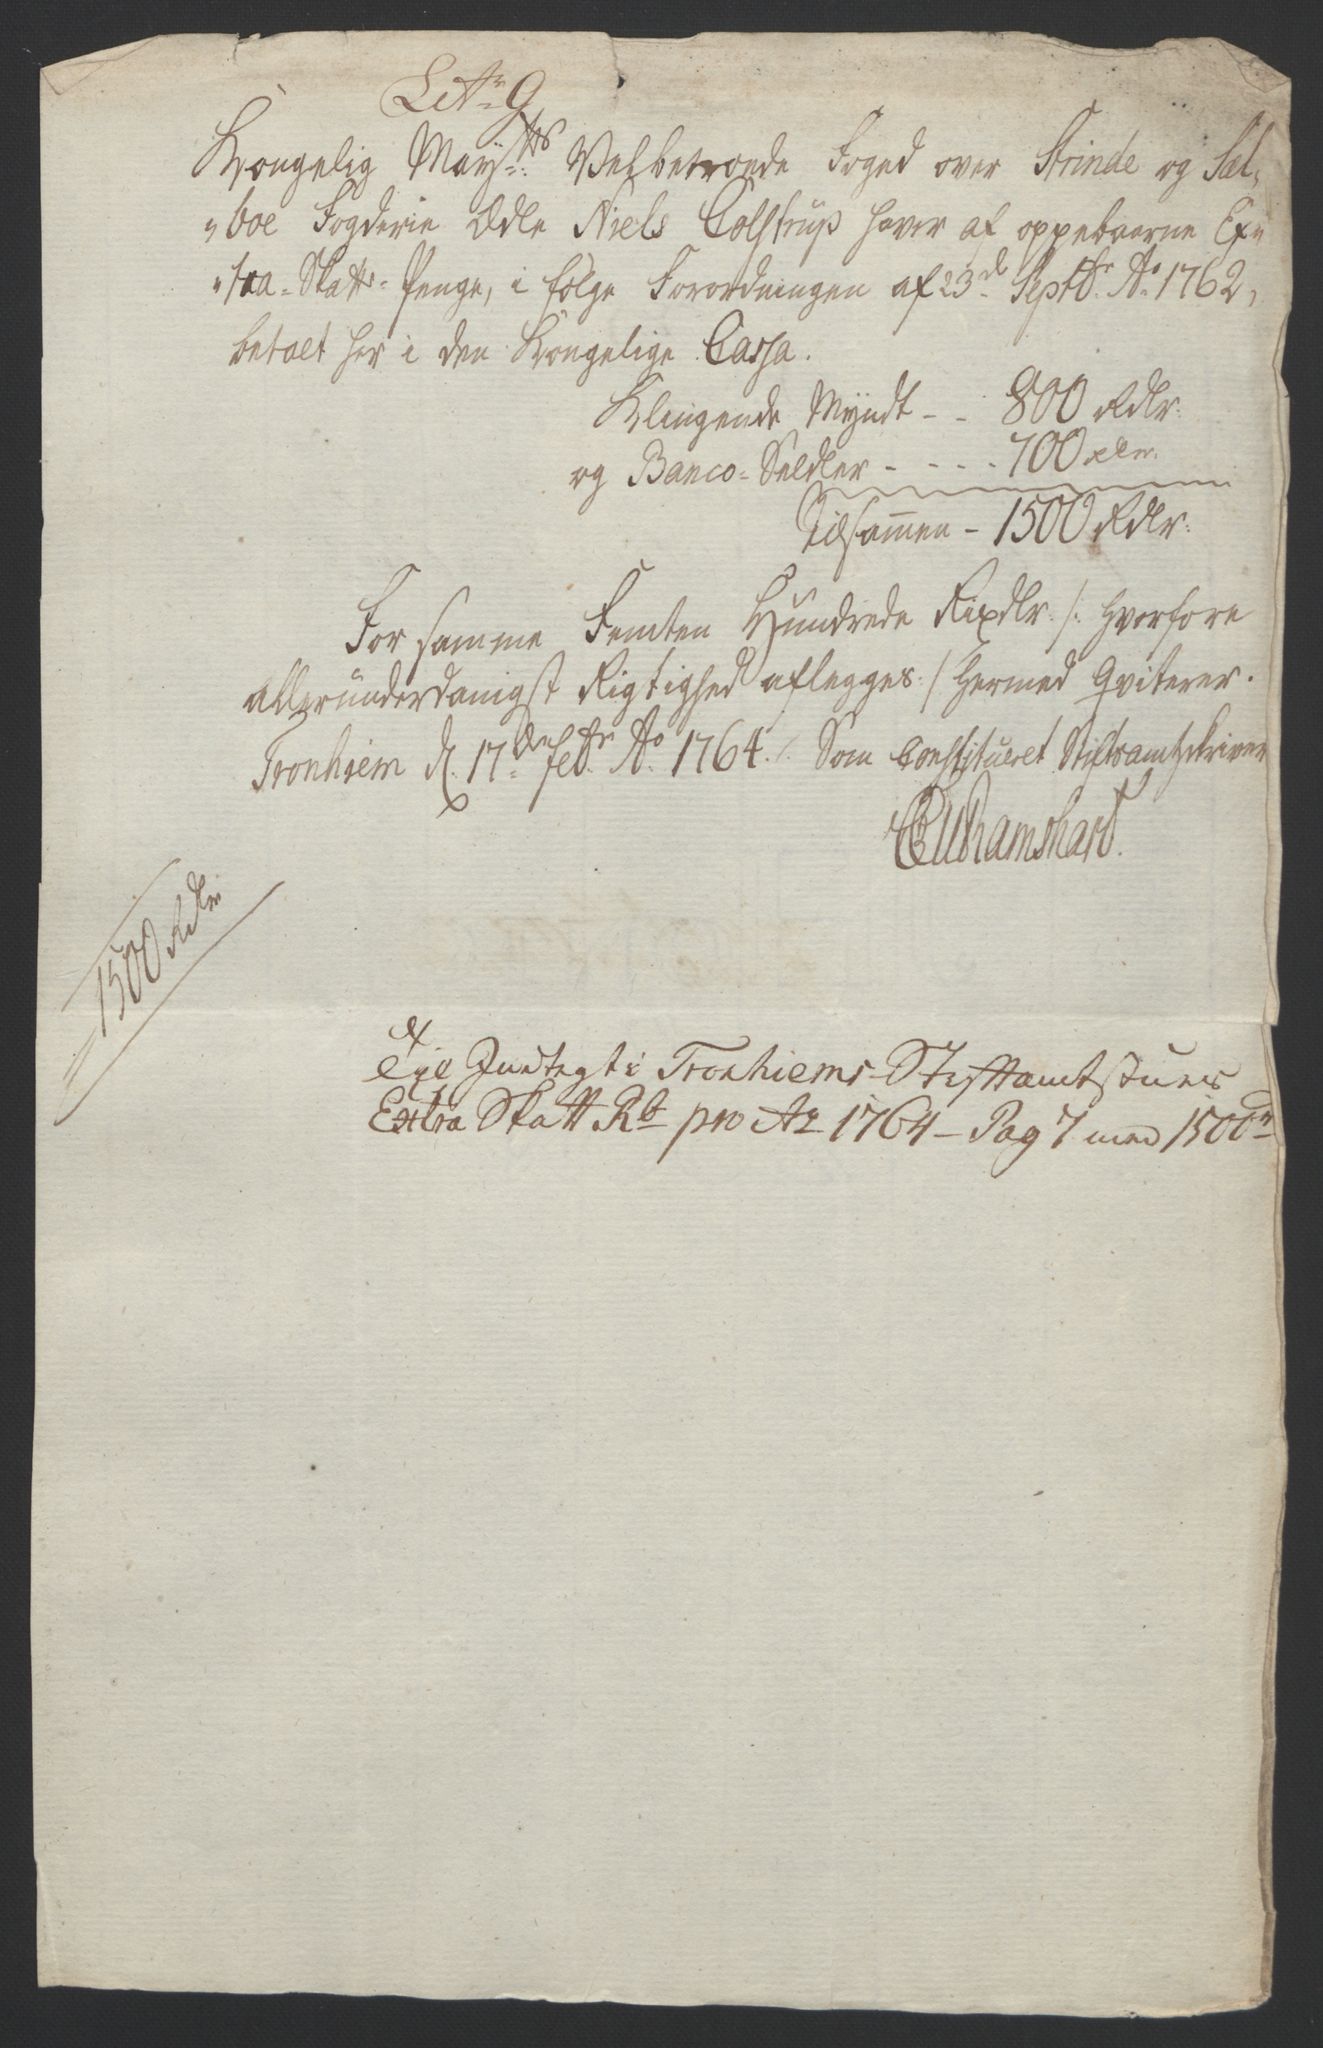 Litr: G
Kongelig Mayts: Velbetroede Foged over Strinde og Sæl,
"boe Fogderie Ædle Niels Colstrup haver af oppebaarne Ex"
"traa-Skatts-Penge, i følge Forordningen af 23d Septbr: Ao 1762,
betalt her i den Kongelige Cassa.
Klingende Myndt - - 800 Rdlr:
og Banco-Seldler - - - - 700 Rdlr.
Tilsammen - 1500 Rdlr:
For samme Femten Hundrede Rixdlr: /: hvorfore
allerunderdanigst Rigtighed aflegges: / hermed Qviterer.
Tronhiem d. 17den febr: Ao 1764. /. Som Constitueret Stiftsamtskriver
Ramshart.
1500 Rdlr
Indtegt i Tronhiems Stiftamtstues
Extra Skatt Rb pro Ao 1764 - Pag 7 med 1500r